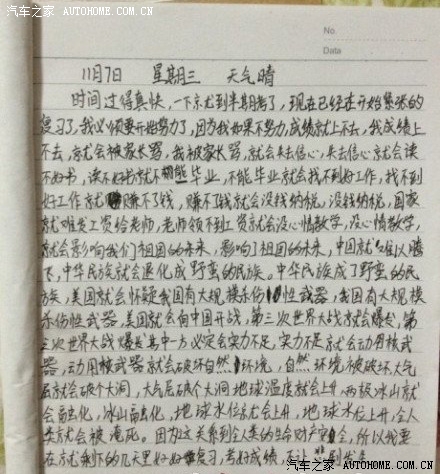 汽车之家 AUTOHOME.COM.CN
汽车之家 AUTOHOME.COM.CN
No.
Data
11月7日 星期三 天气晴
时间过得真快,一下就到半期考了,现在已经在开始紧张的
复习了,我必须要开始努力了,因为我如果不努力,成绩就上不去,我成绩上
不去,就会被家长骂,我被家长骂,就会失去信心,失去信心就会读
不好书,读不好书就不能毕业,不能毕业就会找不到好工作,找不到
好工作就赚不了钱,赚不了钱就会没钱纳税,没钱纳税,国家
就难发工资给老师,老师领不到工资就会没心情教学,没心情教学,
就会影响我们祖国的未来,影响了祖国的未来,中国就难以腾
飞,中华民族就会退化成野蛮的民族。中华民族成了野蛮的民
族,美国就会怀疑我国有大规模杀伤性武器,我国有大规模
杀伤性武器,美国就会向中国开战,第三次世界大战就会爆发,第
三次世界大战爆发其中一方必定会实力不足,实力不足就会动用核武
器,动用核武器就会破坏自然环境,自然环境被破坏大气
层就会破个大洞,大气层破个大洞地球温度就会上升,两极冰山就
会融化,冰山融化,地球水位就会上升,地球水位上升,全人
类就会被淹死。因为这关系到全人类的生命财产安全,所以我要
在就剩下的几天里好好复习,考好成绩,不让